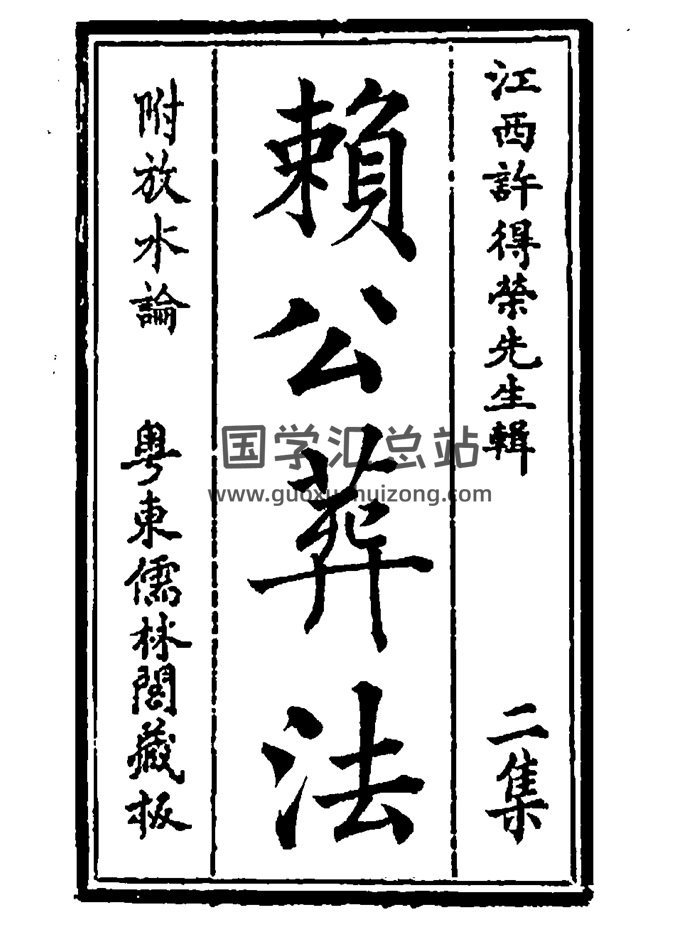 江西許得榮先生輯
二集
賴公葬法
附放水論
粵東儒林閣藏板
国学汇总站
www.guoxuehuizong.com